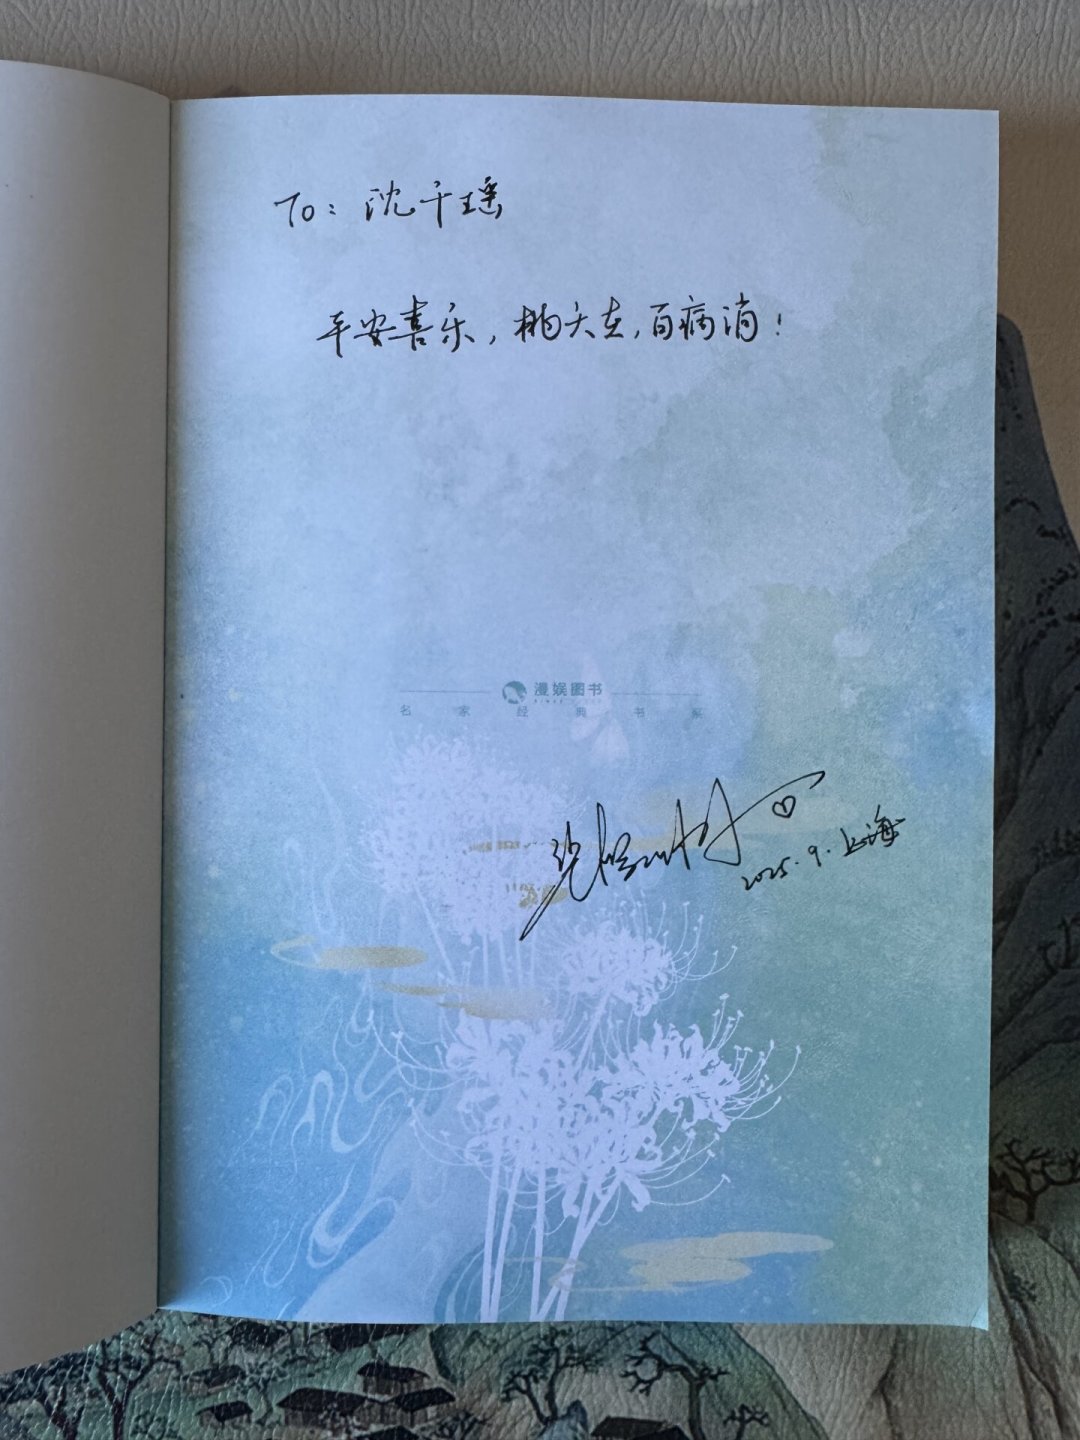 To: 沈千瑶
平安喜乐，在，百病消！
漫娱图书
名家经典书系
2025.9.上海